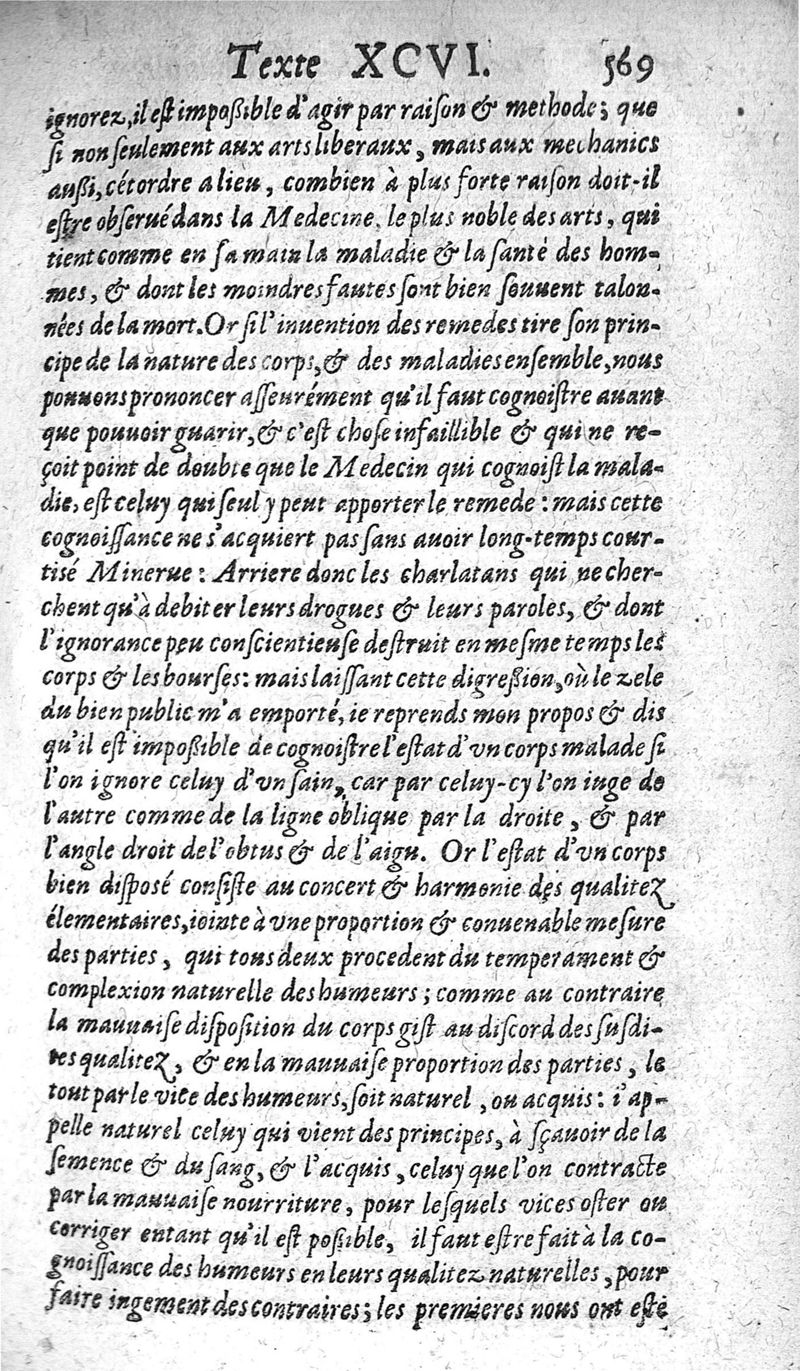 Texte XCVI. 569
ignorez, il est impoßible d'agir par raiſon & methode; que
ſi non ſeulement aux arts liberaux, mais aux mechanics
außi, cét ordre a lieu, combien à plus forte raiſon doit-il
eſtre obſerué dans la Medecine, le plus noble des arts, qui
tient comme en ſa main la maladie & la ſanté des hom-
mes, & dont les moindres fautes ſont bien ſouuent talon-
nées de la mort. Or ſi l'inuention des remedes tire ſon prin-
cipe de la nature des corps, & des maladies enſemble, nous
pouuons prononcer aſſeurément qu'il faut cognoiſtre auant
que pouuoir guarir, & c'eſt choſe infaillible & qui ne re-
çoit point de doubte que le Medecin qui cognoiſt la mala-
die, eſt celuy qui ſeul y peut apporter le remede : mais cette
cognoiſſance ne s'acquiert pas ſans auoir long-temps cour-
tisé Minerue : Arriere donc les charlatans qui ne cher-
chent qu'à debiter leurs drogues & leurs paroles, & dont
l'ignorance peu conſcientieuſe deſtruit en meſme temps les
corps & les bourſes: mais laiſſant cette digreßion, où le zele
du bien public m'a emporté, ie reprends mon propos & dis
qu'il eſt impoßible de cognoiſtre l'eſtat d'vn corps malade ſi
l'on ignore celuy d'vn ſain, car par celuy-cy l'on iuge de
l'autre comme de la ligne oblique par la droite, & par
l'angle droit de l'obtus & de l'aigu. Or l'eſtat d'vn corps
bien diſposé conſiſte au concert & harmonie des qualitez
élementaires, iointe à vne proportion & conuenable meſure
des parties, qui tous deux procedent du temperament &
complexion naturelle des humeurs ; comme au contraire
la mauuaiſe diſpoſition du corps giſt au diſcord des ſuſdi-
tes qualitez, & en la mauuaiſe proportion des parties, le
tout par le vice des humeurs, ſoit naturel, ou acquis: i'ap-
pelle naturel celuy qui vient des principes, à ſçauoir de la
ſemence & du ſang, & l'acquis, celuy que l'on contracte
par la mauuaiſe nourriture, pour leſquels vices oſter ou
corriger entant qu'il eſt poßible, il faut eſtre fait à la co-
gnoiſſance des humeurs en leurs qualitez naturelles, pour
faire iugement des contraires; les premieres nous ont eſté